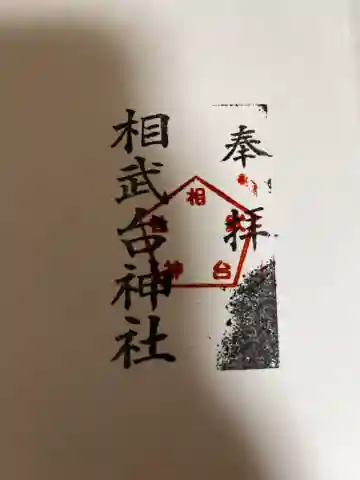 奉拝
相武台神社
相
台